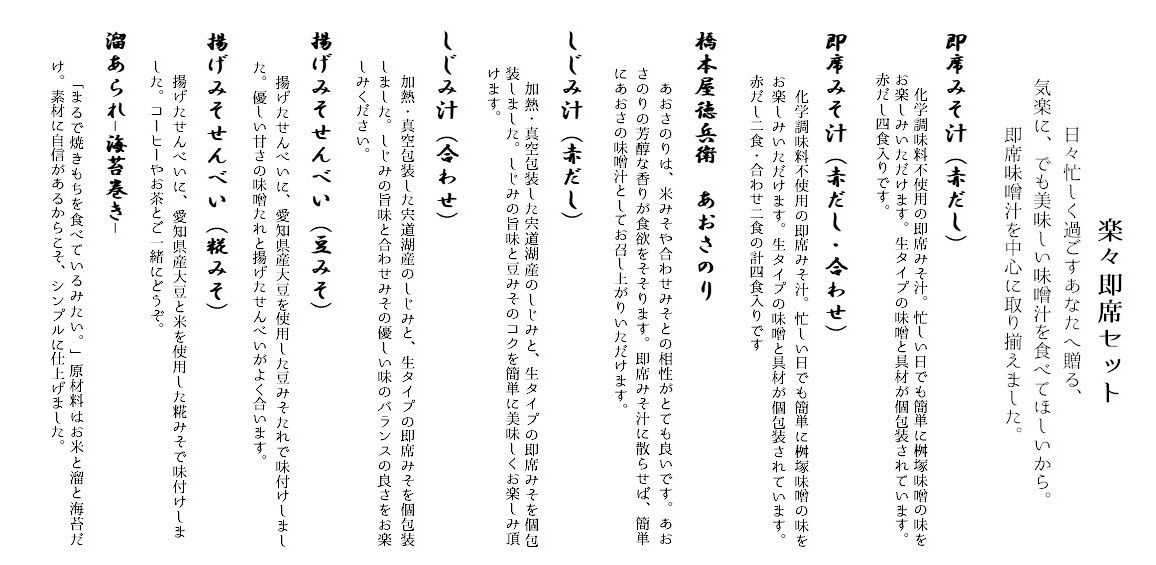 楽々即席セット
日々忙しく過ごすあなたへ贈る、
気楽に、でも美味しい味噌汁を食べてほしいから。
即席味噌汁を中心に取り揃えました。
即席みそ汁（赤だし）
化学調味料不使用の即席みそ汁。忙しい日でも簡単に桝塚味噌の味を
お楽しみいただけます。生タイプの味噌と具材が個包装されています。
赤だし四食入りです。
即席みそ汁（赤だし・合わせ）
化学調味料不使用の即席みそ汁。忙しい日でも簡単に桝塚味噌の味を
お楽しみいただけます。生タイプの味噌と具材が個包装されています。
赤だし二食・合わせ二食の計四食入りです
橋本屋徳兵衛　あおさのり
あおさのりは、米みそや合わせみそとの相性がとても良いです。あお
さのりの芳醇な香りが食欲をそそります。即席みそ汁に散らせば、簡単
にあおさの味噌汁としてお召し上がりいただけます。
しじみ汁（赤だし）
加熱・真空包装した宍道湖産のしじみと、生タイプの即席みそを個包
装しました。しじみの旨味と豆みそのコクを簡単に美味しくお楽しみ頂
けます。
しじみ汁（合わせ）
加熱・真空包装した宍道湖産のしじみと、生タイプの即席みそを個包装
しました。しじみの旨味と合わせみその優しい味のバランスの良さをお楽
しみください。
揚げみそせんべい（豆みそ）
揚げたせんべいに、愛知県産大豆を使用した豆みそたれで味付けしまし
た。優しい甘さの味噌たれと揚げたせんべいがよく合います。
揚げみそせんべい（糀みそ）
揚げたせんべいに、愛知県産大豆と米を使用した糀みそで味付けしま
した。コーヒーやお茶とご一緒にどうぞ。
溜あられ−海苔巻き−
「まるで焼きもちを食べているみたい。」原材料はお米と溜と海苔だ
け。素材に自信があるからこそ、シンプルに仕上げました。